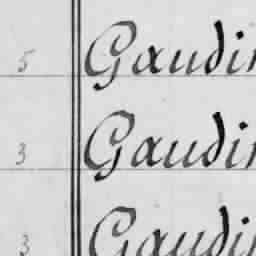 5 Gaudin
3 Gaudin
3 Gaudin